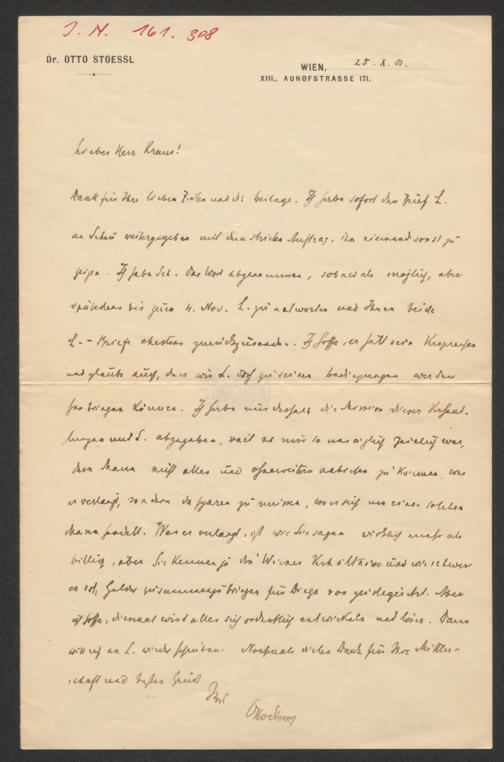 I. N. 161.308
Dr. OTTO STOESSL
WIEN, 25. X. 
XIII., AUHOFSTRASSE 171.
Lieber Herr Kraus!
Dank für Ihre lieben Zeilen und die Beilage. Ich habe sofort den Brief L.
an Scheu weitergegeben mit dem strikten Auftrag, ihn niemand sonst zu
zeigen. Ich habe Sch. das Wort abgenommen, sobald als möglich, aber
spätestens bis zum 4. Nov. L. zu antworten und Ihnen beide
L.-Briefe ehestens zurückzusenden. Ich hoffe, er hält sein Versprechen
und glaube auch, dass wir L. doch zu seinen Bedingungen werden
herbringen können. Ich habe nur deshalb die Mission dieser Verhand-
lungen mit L. abgegeben, weil es mir so unsäglich peinlich war,
dem Mann nicht alles und ohneweiters anbieten zu können, was
er verlangt, sondern da sparen zu müssen, wo es sich um einen solchen
Mann handelt. Was er verlangt, ist wie Sie sagen wirklich mehr als
billig, aber Sie kennen ja die Wiener Verhältnisse und wie schwer
es ist, Gelder zusammenzubringen für Dinge von geistiger Art. Aber
ich hoffe, diesmal wird alles sich ordentlich entwickeln und lösen. Dann
will ich an L. wieder schreiben. Nochmals vielen Dank für Ihre Mittler-
schaft und besten Gruß
Ihr
Otto Stoessl